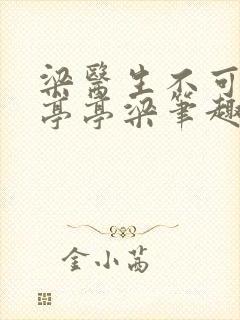 梁醫生不可
亭亭梁筆趣
金小萵